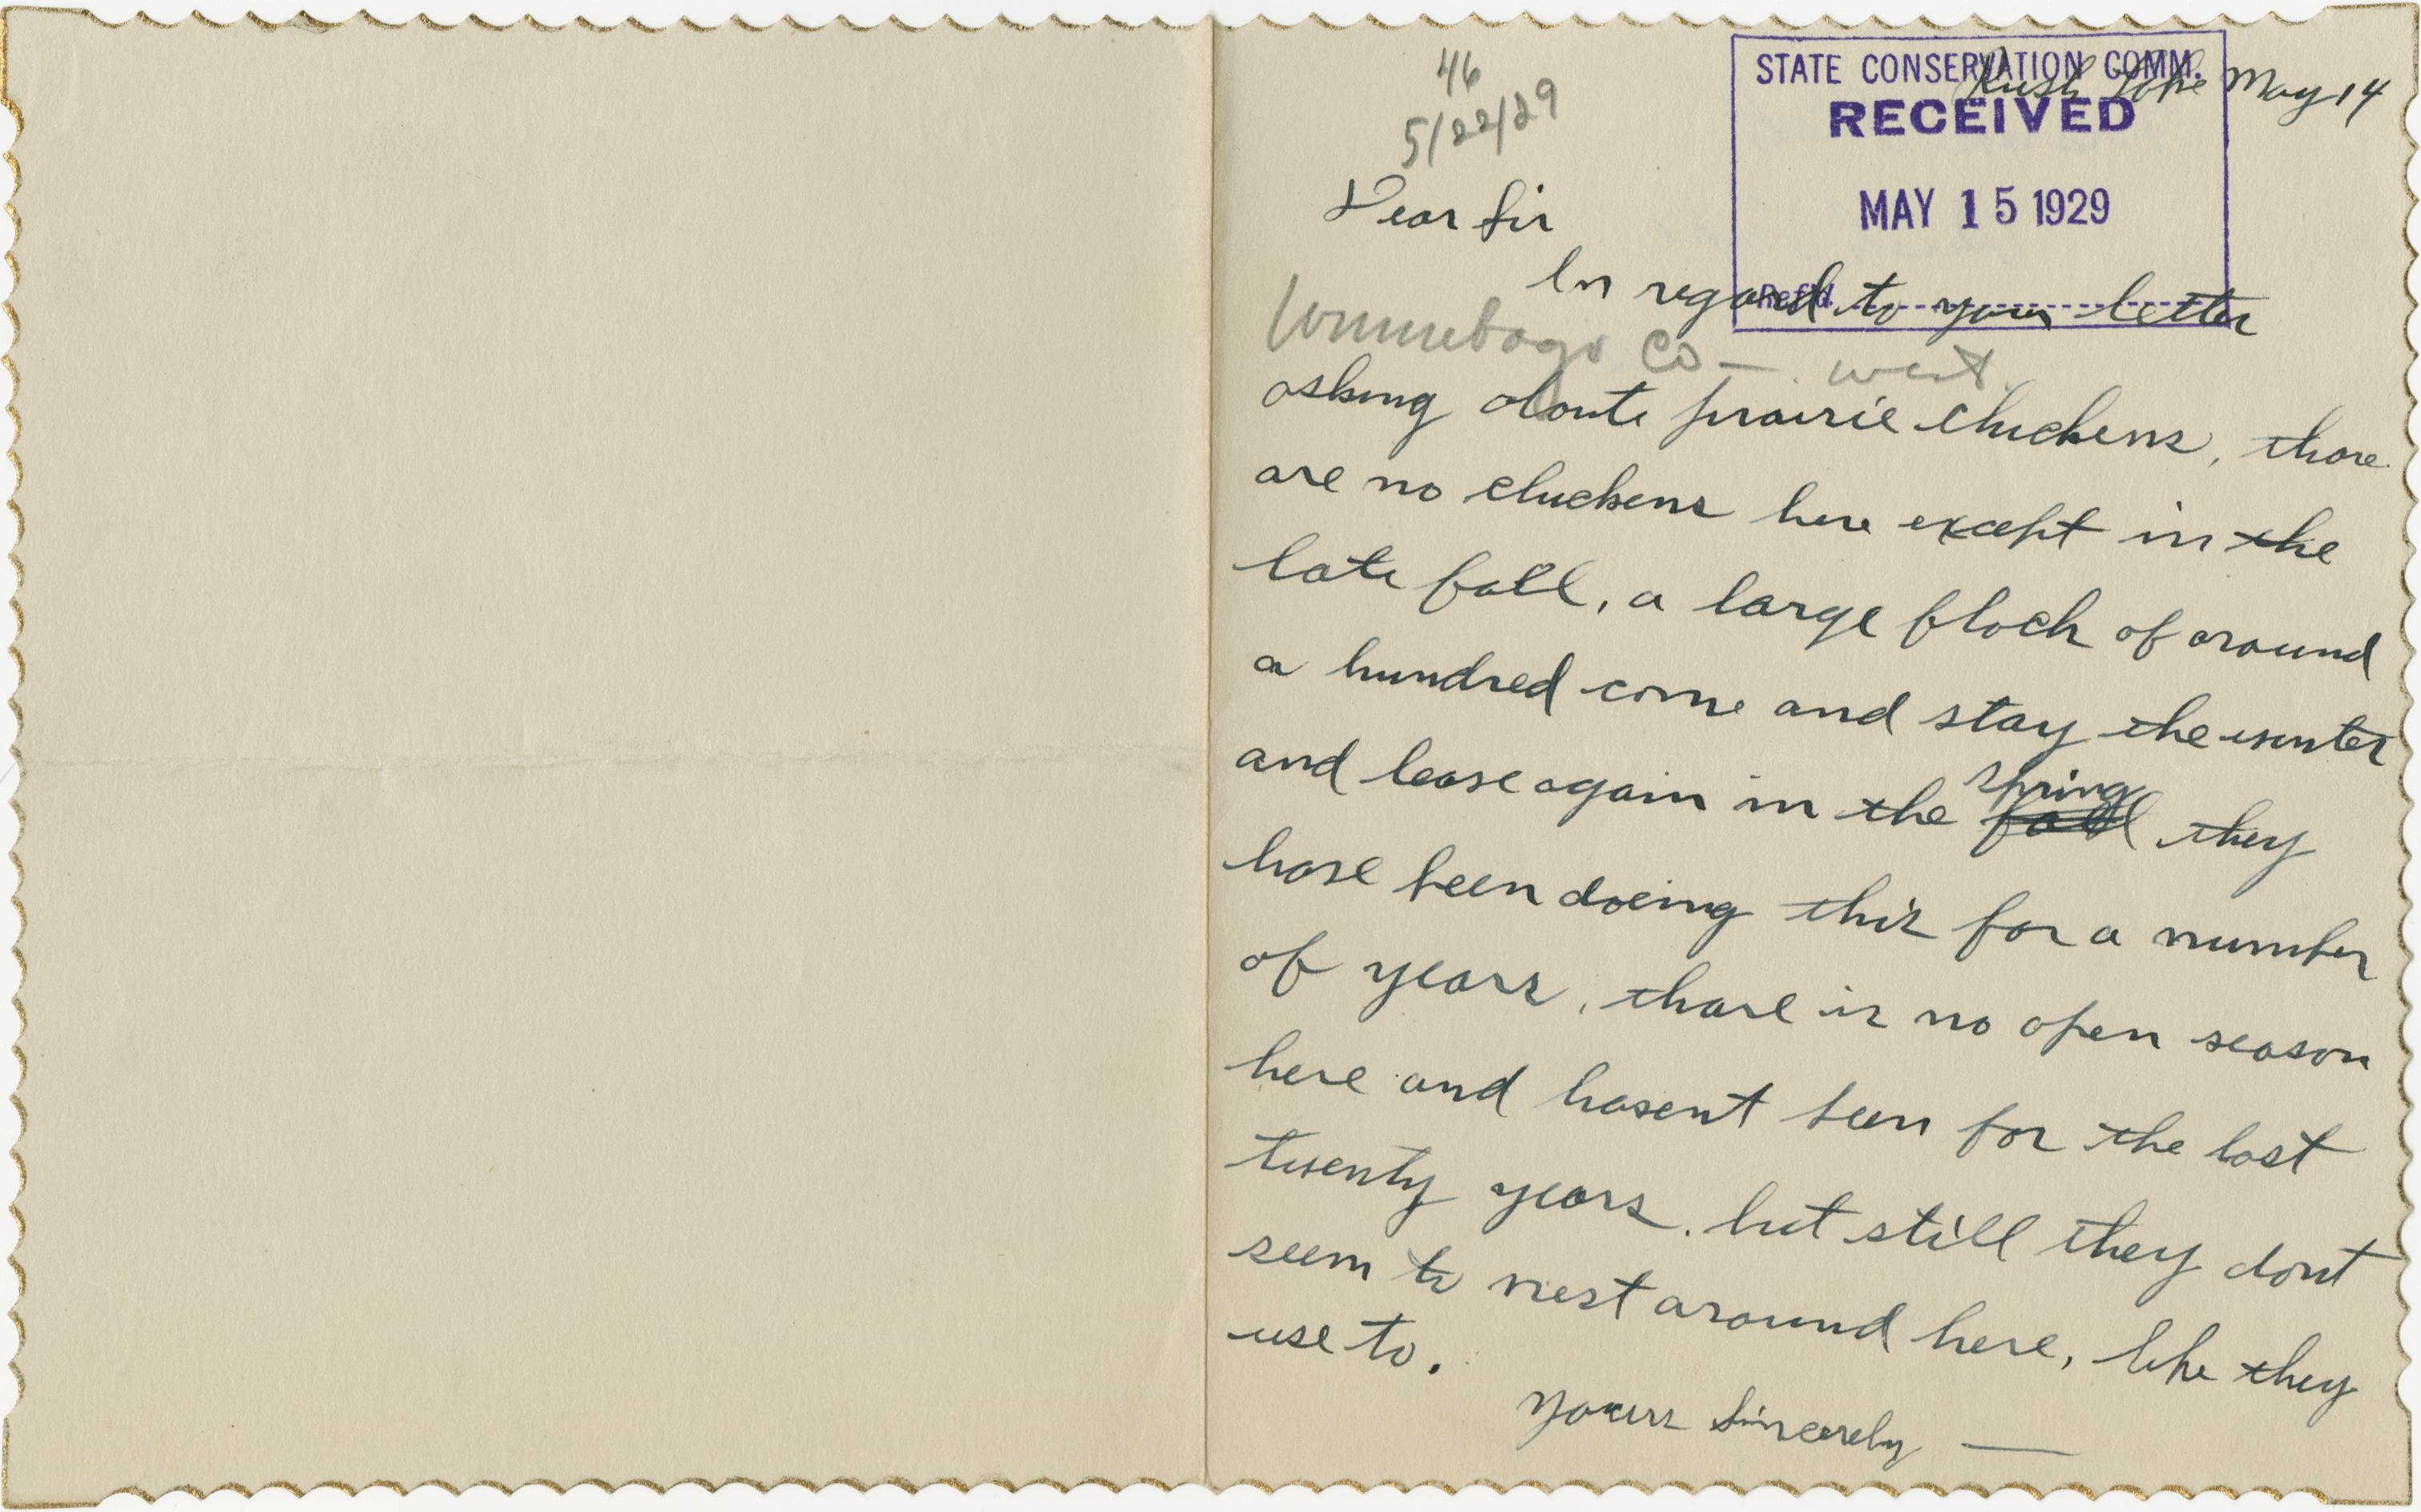 46
5/22/29
STATE CONSERVATION COMM.
RECEIVED
MAY 15 1929
Ref'd
Rush Lake May 14
Dear Sir
In regard to your letter
Winnebago Co — west.
asking aboute prairie chickens, thare
are no chickens here except in the
late fall, a large flock of around
a hundred come and stay the winter
and leave again in the fall spring they
have been doeing this for a number
of years, thare is no open season
here and havent been for the last
twenty years. but still they dont
seem to nest around here, like they
use to.
Yours Sincerely —